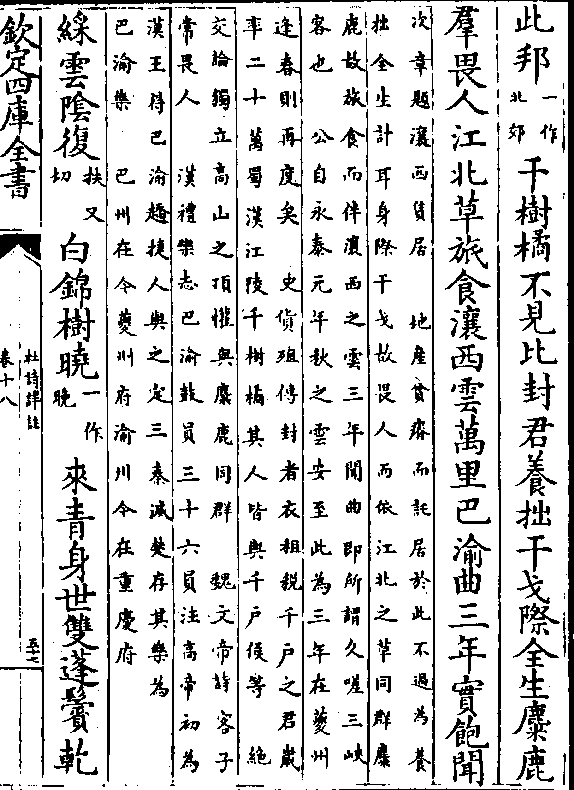 此邦一作北郊千樹橘不見比封君養拙干戈際全生麋鹿
羣畏人江北草旅食瀼西雲萬里巴渝曲三年實飽聞
次章題瀼西賃居　地產貧瘠而託居於此不過為養
拙全生計耳身際干戈故畏人而依江北之草同群麋
鹿故旅食而伴瀼西之雲三年聞曲即所謂久嗟三峽
客也　公自永泰元年秋之雲安至此為三年在夔州
逢春則再度矣　史貨殖傳封者衣租稅千戶之君歲
率二十萬蜀漢江陵千樹橘其人皆與千戶侯等　絶
交論獨立高山之頂懽與麋鹿同群　魏文帝詩客子
常畏人　漢禮樂志巴渝鼓員三十六員注高帝初為
漢王得巴渝趫捷人與之定三秦滅楚存其樂為
巴渝樂　巴州在今夔州府渝州今在重慶府
綵雲陰復扶又切白錦樹曉一作晚來青身世雙蓬鬢乾
欽定四庫全書
杜詩詳註
卷十八
五十七